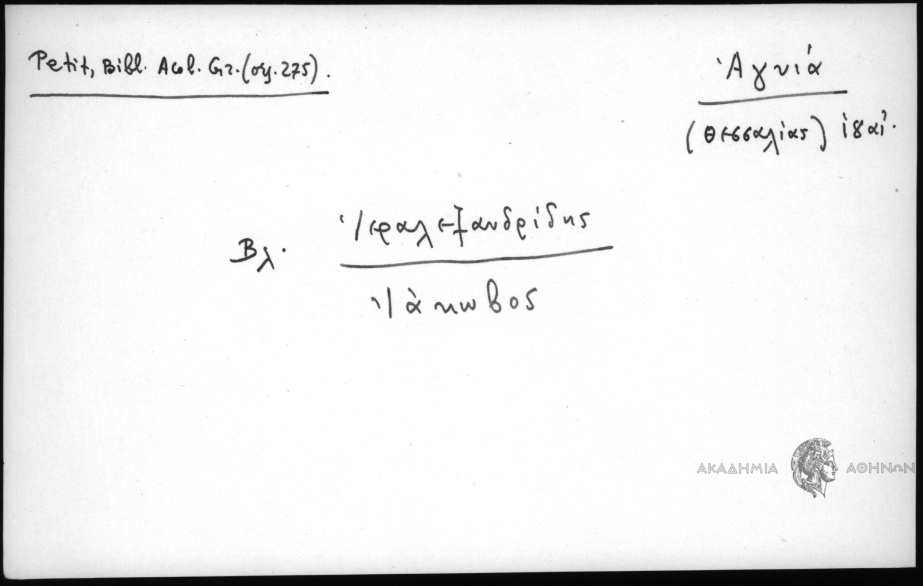 Petit, Bibl. Acol. Gr. (σy. 275).
Ἁγνιά
(Θεσσαλίας)
Βλ. Ἱεραλεξανδρίδης
Ἰάκωβος
ΑΚΑΔΗΜΙΑ ΑΘΗΝΩΝ